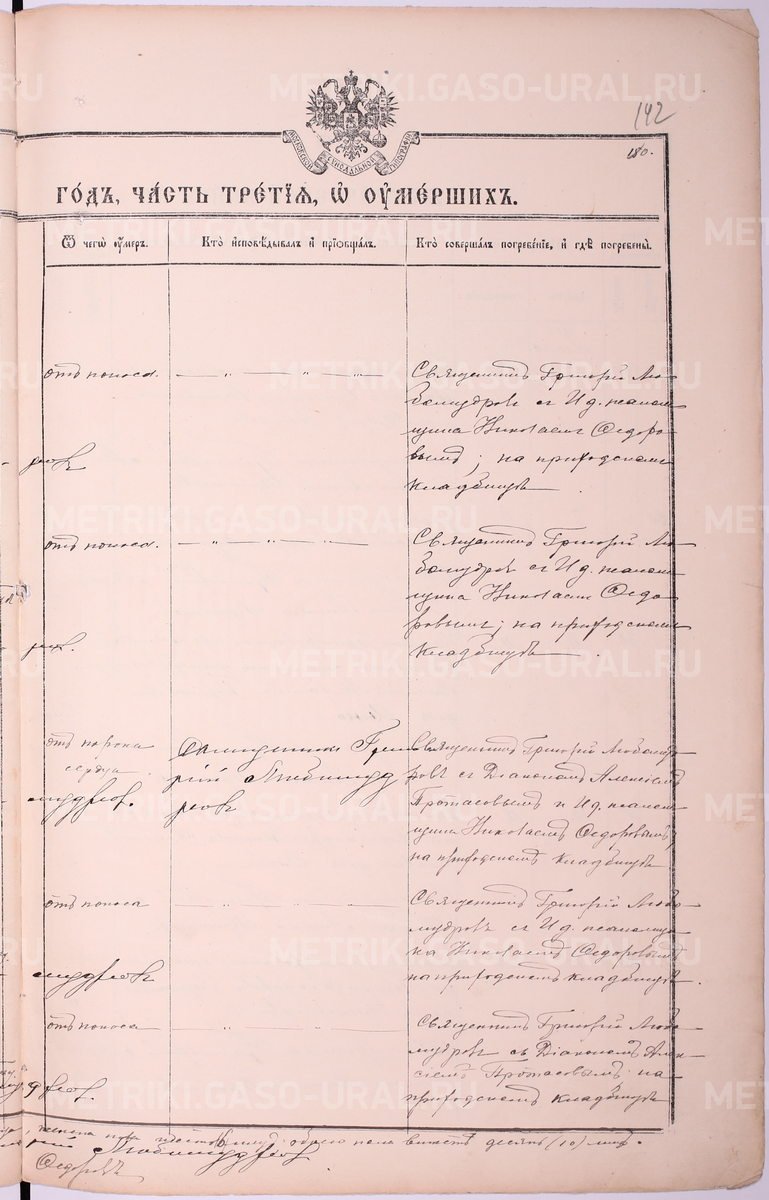 142
180.
МОСКОВСКОЙ СѴНОДАЛЬНОЙ ТИПОГРАФІИ
ГО́ДЪ, ЧА́СТЬ ТРЕ́ТІѦ, Ѡ҆ ОУ҆МЕ́РШИХЪ.
Ѿ чегѡ̀ оу҆́меръ.
Кто̀ и҆сповѣ́дывалъ и҆ прїѡбща́лъ.
Кто̀ соверша́лъ погребе́нїе, и҆ гдѣ̀ погребены̀.
отъ поноса.
Священникъ Григорій Лю-
бомудровъ съ И д. псалом-
щика Николаемъ Ѳедоро-
вымъ; на приходскомъ
кладбищѣ
ровъ
отъ поноса.
Священникъ Григорій Лю-
бомудровъ съ И д. псалом-
щика Николаемъ Ѳедо-
ровымъ; на приходскомъ
кладбищѣ.
отъ порока
сердца
мудров.
Священникъ Григо-
рій Любомуд
ровъ
Священникъ Григорій Любомуд-
ровъ съ Діакономъ Алексіемъ
Протасовымъ и И д. псалом-
щика Николаемъ Ѳедоровымъ,
на приходскомъ кладбищѣ
отъ поноса
Священникъ Григорій Любо-
мудровъ съ И д. псаломщи-
ка Николаемъ Ѳедоровымъ
на приходскомъ кладбищѣ.
мудровъ
отъ поноса
Священникъ Григорій Любо-
мудровъ съ Діакономъ Алек-
сіемъ Протасовымъ на
приходскомъ кладбищѣ
обоего пола вмѣстѣ десять (10) лицъ.
Любомудров
Ѳедоровъ
METRIKI.GASO-URAL.RU